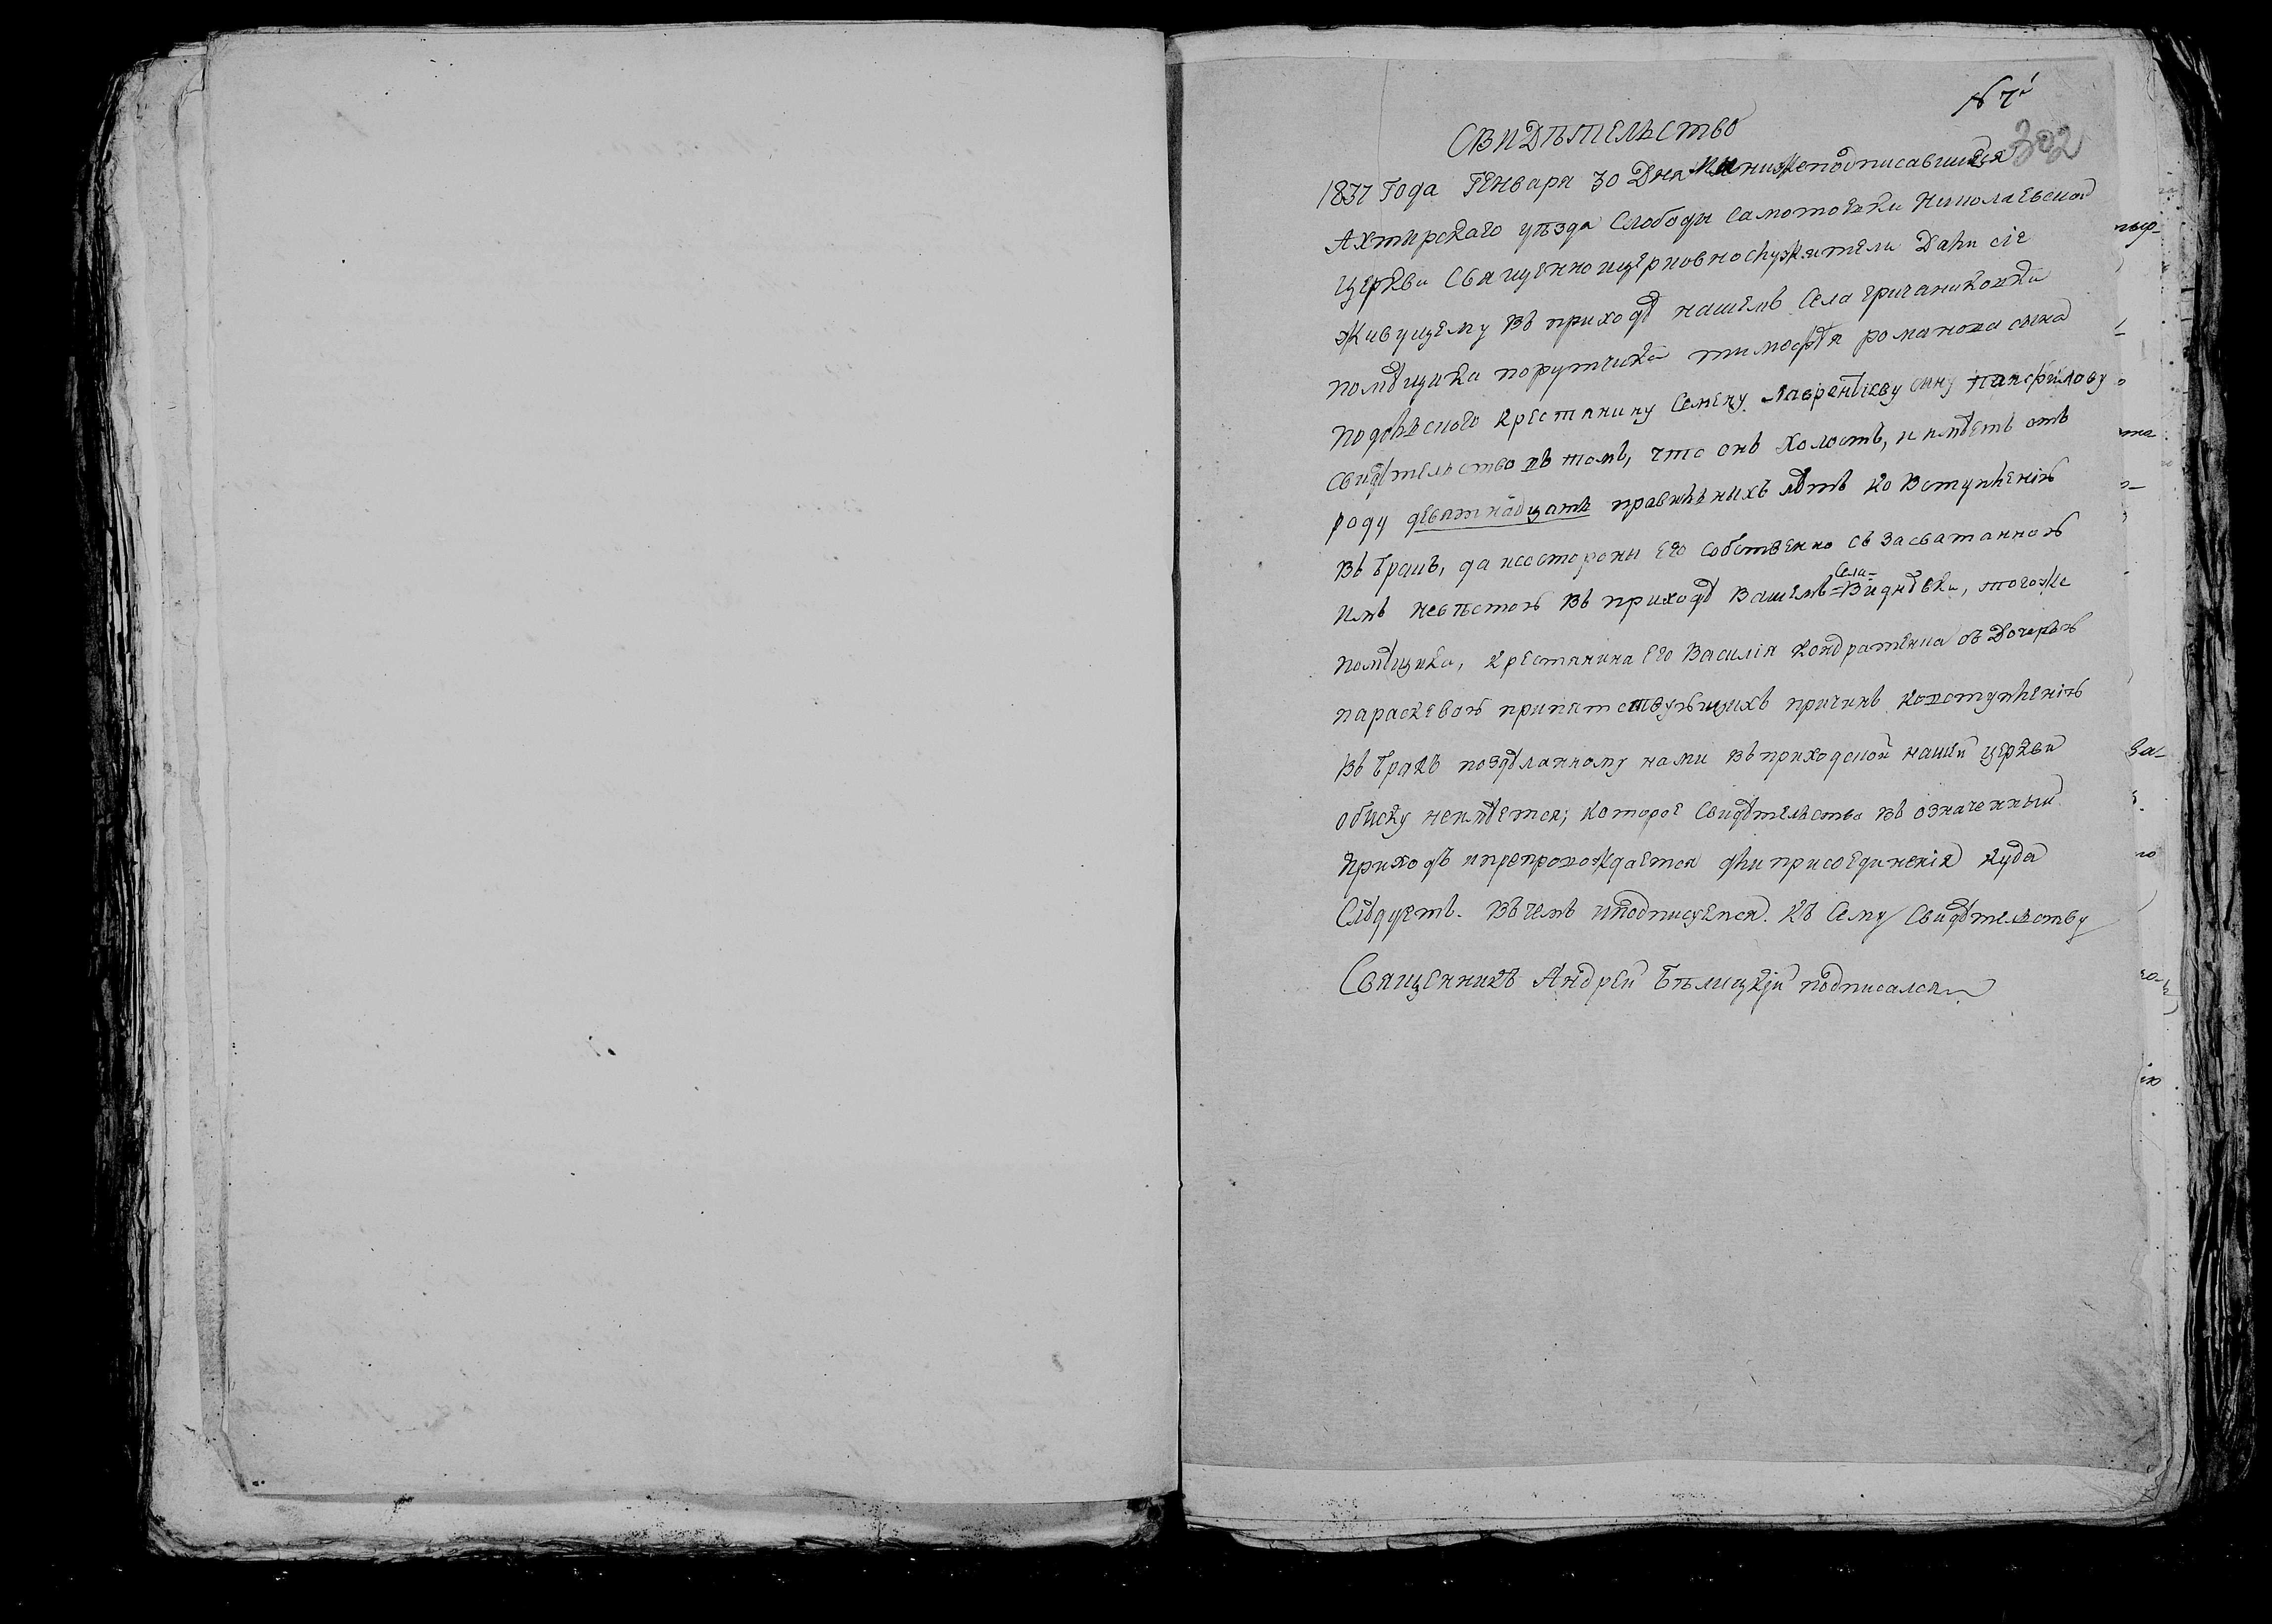 N 7й
302
Свидѣтельство
1837 Года Генваря 30 Дня Мы нижеподписавшиеся
Ахтирскаго уѣзда Слободы Самотоевки Николаевской
Церкви Священноицерковнослужители Дали сіе
Живущему въ приходѣ нашемъ Села Гричаниковки
помѣщика порутчика тимофѣя романова сына
крестянину Семену Лаврентіеву сину панфилову
Свидѣтельство въ томъ, что онъ холостъ, и имѣетъ отъ
роду девятнадцать правильныхъ лѣтъ ко Вступленію
Въ бракъ, да исостороны Его Собственно съ засватанною
имъ невѣстою Въ приходѣ Вашемъ Села Видновки, тогоже
помѣщика, крестянина Его Василія Кондратенка съ Дочерью
параскевою припятствующихъ причинъ ковступленію
Въ бракъ поздѣланному нами Въ приходской нашей церкви
обиску неимѣется; которое Свидѣтельство Въ означенный
приходъ ипрепровождается для присоединенія куда
Слѣдуетъ. Въ чемъ иподписуемся. Къ Сему Свидѣтельству
Священникъ Андрей Бѣлицкій подписался
за-
го
ію